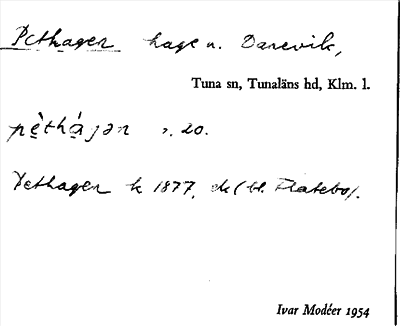 Pethagen hage n. Danevik,
Tuna sn, Tunaläns hd, Klm. l.
pèthájən s. 20.
Pethagen k 1877, ek (bl. Flatebo).
Ivar Modéer 1954